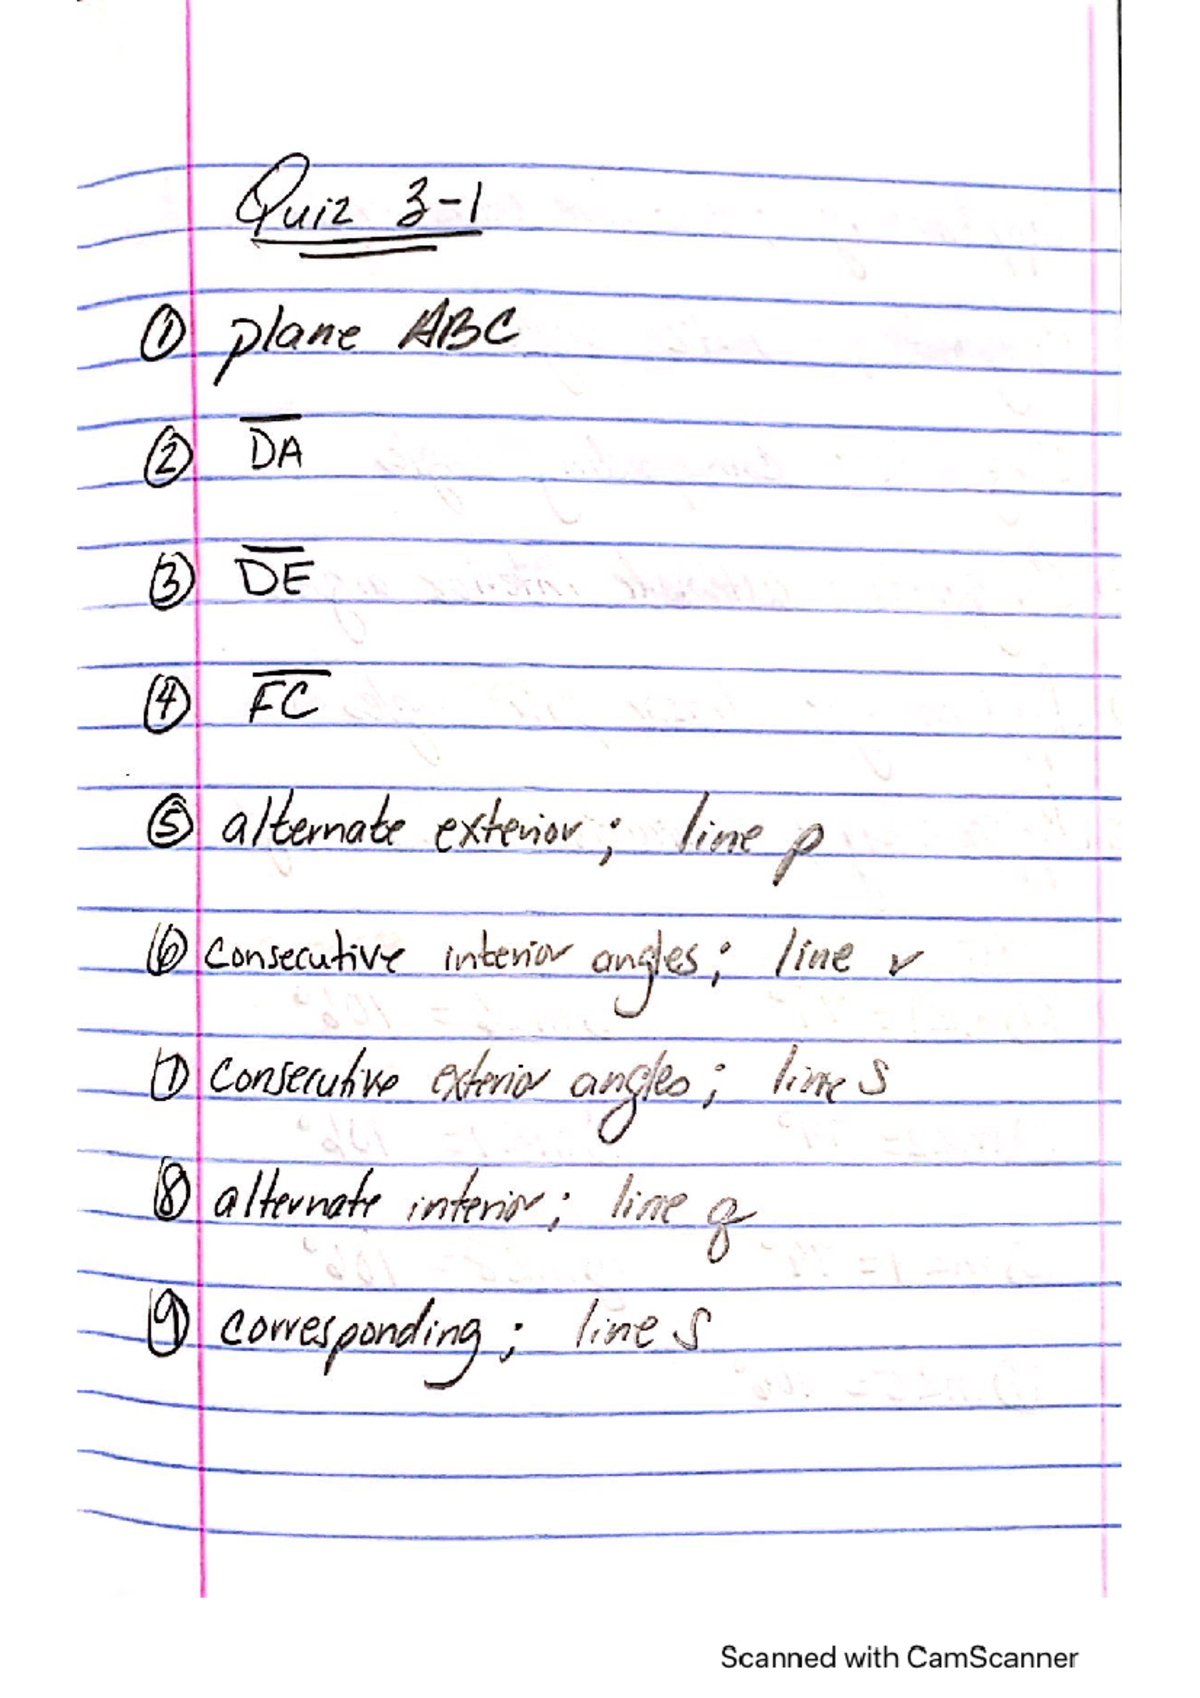 Quiz 3-1
① plane ABC
② D͞A͞
③ D͞E͞
④ F͞C͞
⑤ alternate exterior; line p
⑥ consecutive interior angles; line r
⑦ consecutive exterior angles; line s
⑧ alternate interior; line q
⑨ corresponding; line s
Scanned with CamScanner